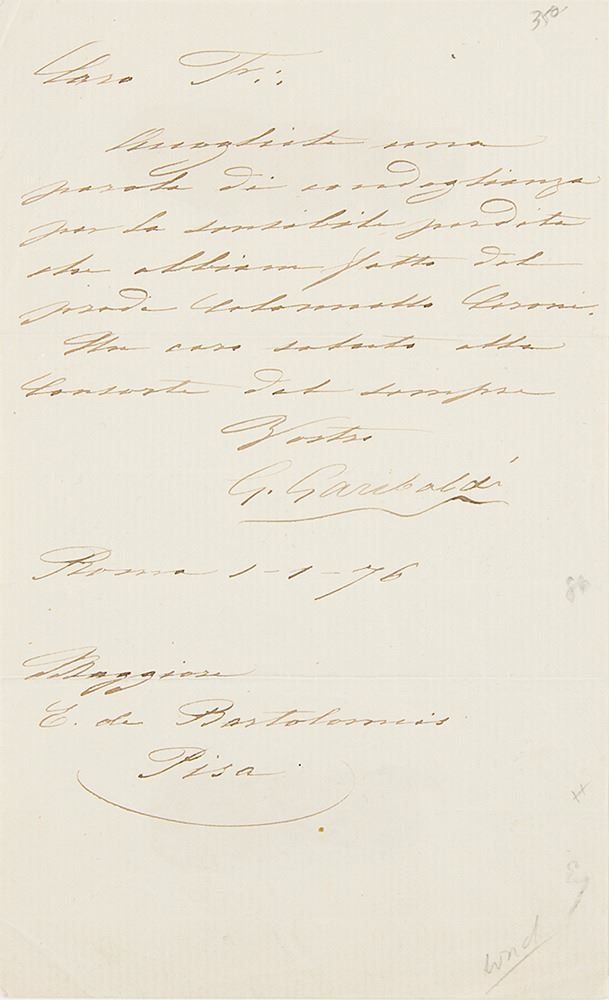 350
Caro Fr∴
Accogliete una
parola di condoglianza
per la sensibile perdita
che abbiam fatto del
prode Colonnello Coroni.
Un caro saluto alla
Consorte dal sempre
Vostro
G. Garibaldi
Roma 1-1-76
Maggiore
E. de Bartolomeis
Pisa